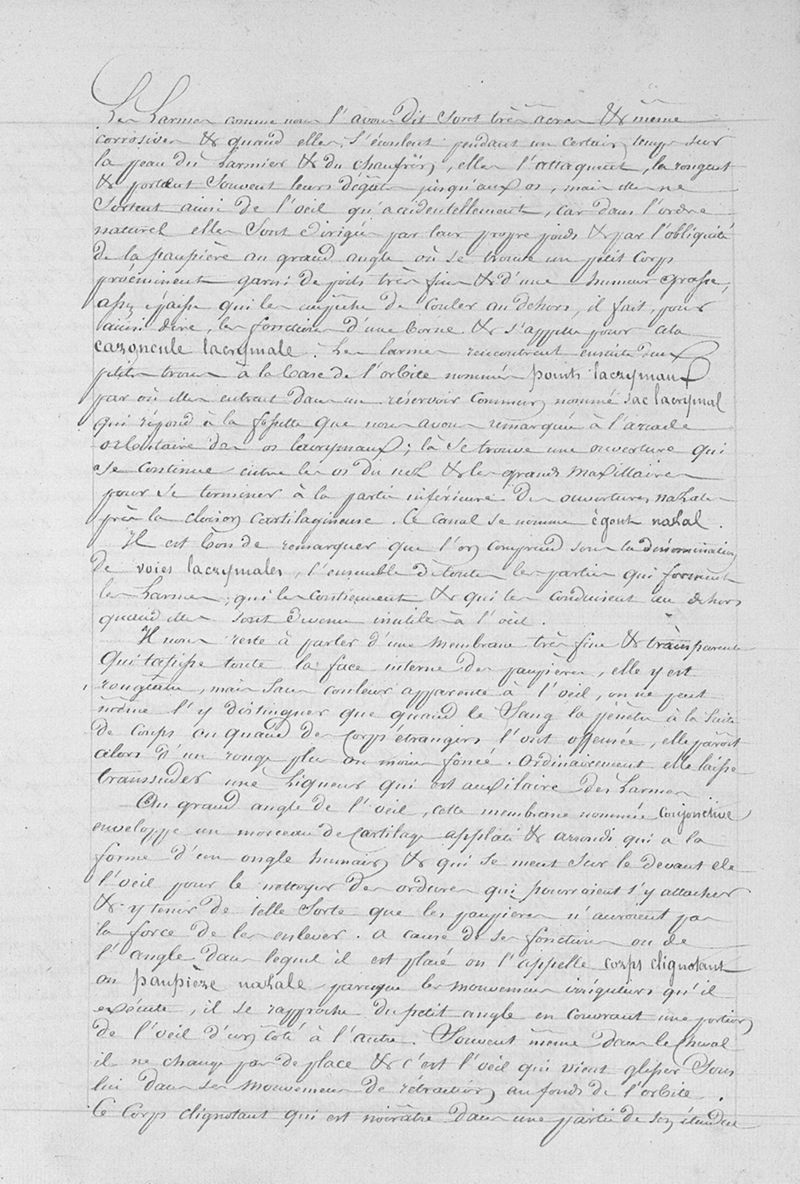 Les Larmes comme nous l'avons dit sont très acres & même
corrosives & quand elles s'écoulent pendant un certain temps sur
la peau du Larmier & du chanfrein, elles l'attaquent, la rongent
& portent souvent leurs dégâts jusqu'aux os, mais elles ne
sortent ainsi de l'oeil qu'accidentellement, car dans l'ordre
naturel elles sont dirigées par leur propre poids & par l'obliquité
de la paupière au grand angle où se trouve un petit corps
proéminent garni de poils très fins & d'une humeur grasse,
assez épaisse qui les empêche de couler au dehors, il fait, pour
ainsi dire, les fonctions d'une borne & s'appelle pour cela
caroncule lacrymale. Les larmes rencontrent ensuite deux
petits trous à la base de l'orbite nommés points lacrymaux
par où elles entrent dans un reservoir commun nommé sac lacrymal
qui répond à la fossette que nous avons remarquée à l'arcade
orbitaire des os lacrymaux; là se trouve une ouverture qui
se continue entre les os du nez & les grands Maxillaires
pour se terminer à la partie inférieure des ouvertures nazales
près la cloison cartilagineuse. Ce canal se nomme égout nazal.
Il est bon de remarquer que l'on comprend sous la dénomination
de voies lacrymales, l'ensemble de toutes les parties qui forment
les Larmes, qui les contiennent & qui les conduisent au dehors
quand elles sont devenues inutiles à l'oeil.
Il nous reste à parler d'une membrane très fine & transparente
qui tapisse toute la face interne des paupieres, elle y est
rougeâtre, mais sans couleur apparente à l'oeil, on ne peut
même l'y distinguer que quand le Sang la pénètre à la suite
de coups ou quand des corps étrangers l'ont offensée, elle paroit
alors d'un rouge plus ou moins foncé. Ordinairement elle laisse
transsuder une Liqueur qui est auxilaire des Larmes.
Au grand angle de l'oeil, cette membrane nommée conjonctive
enveloppe un morceau de Cartilage applati & arrondi qui a la
forme d'un ongle humain & qui se meut sur le devant de
l'oeil pour le nettoyer des ordures qui pourraient s'y attacher
& y tenir de telle sorte que les paupieres n'auroient pas
la force de les enlever. A cause de ses fonctions ou de
l'angle dans lequel il est placé on l'appelle corps clignotant
ou paupière nazale parceque les mouvemens irréguliers qu'il
exécute, il se rapproche du petit angle en couvrant une portion
de l'oeil d'un coté à l'autre. Souvent même dans le cheval
il ne change pas de place & c'est l'oeil qui vient glisser sous
lui dans ses mouvemens de rétraction au fonds de l'orbite.
Ce Corps clignotant qui est noirâtre dans une partie de son étendue